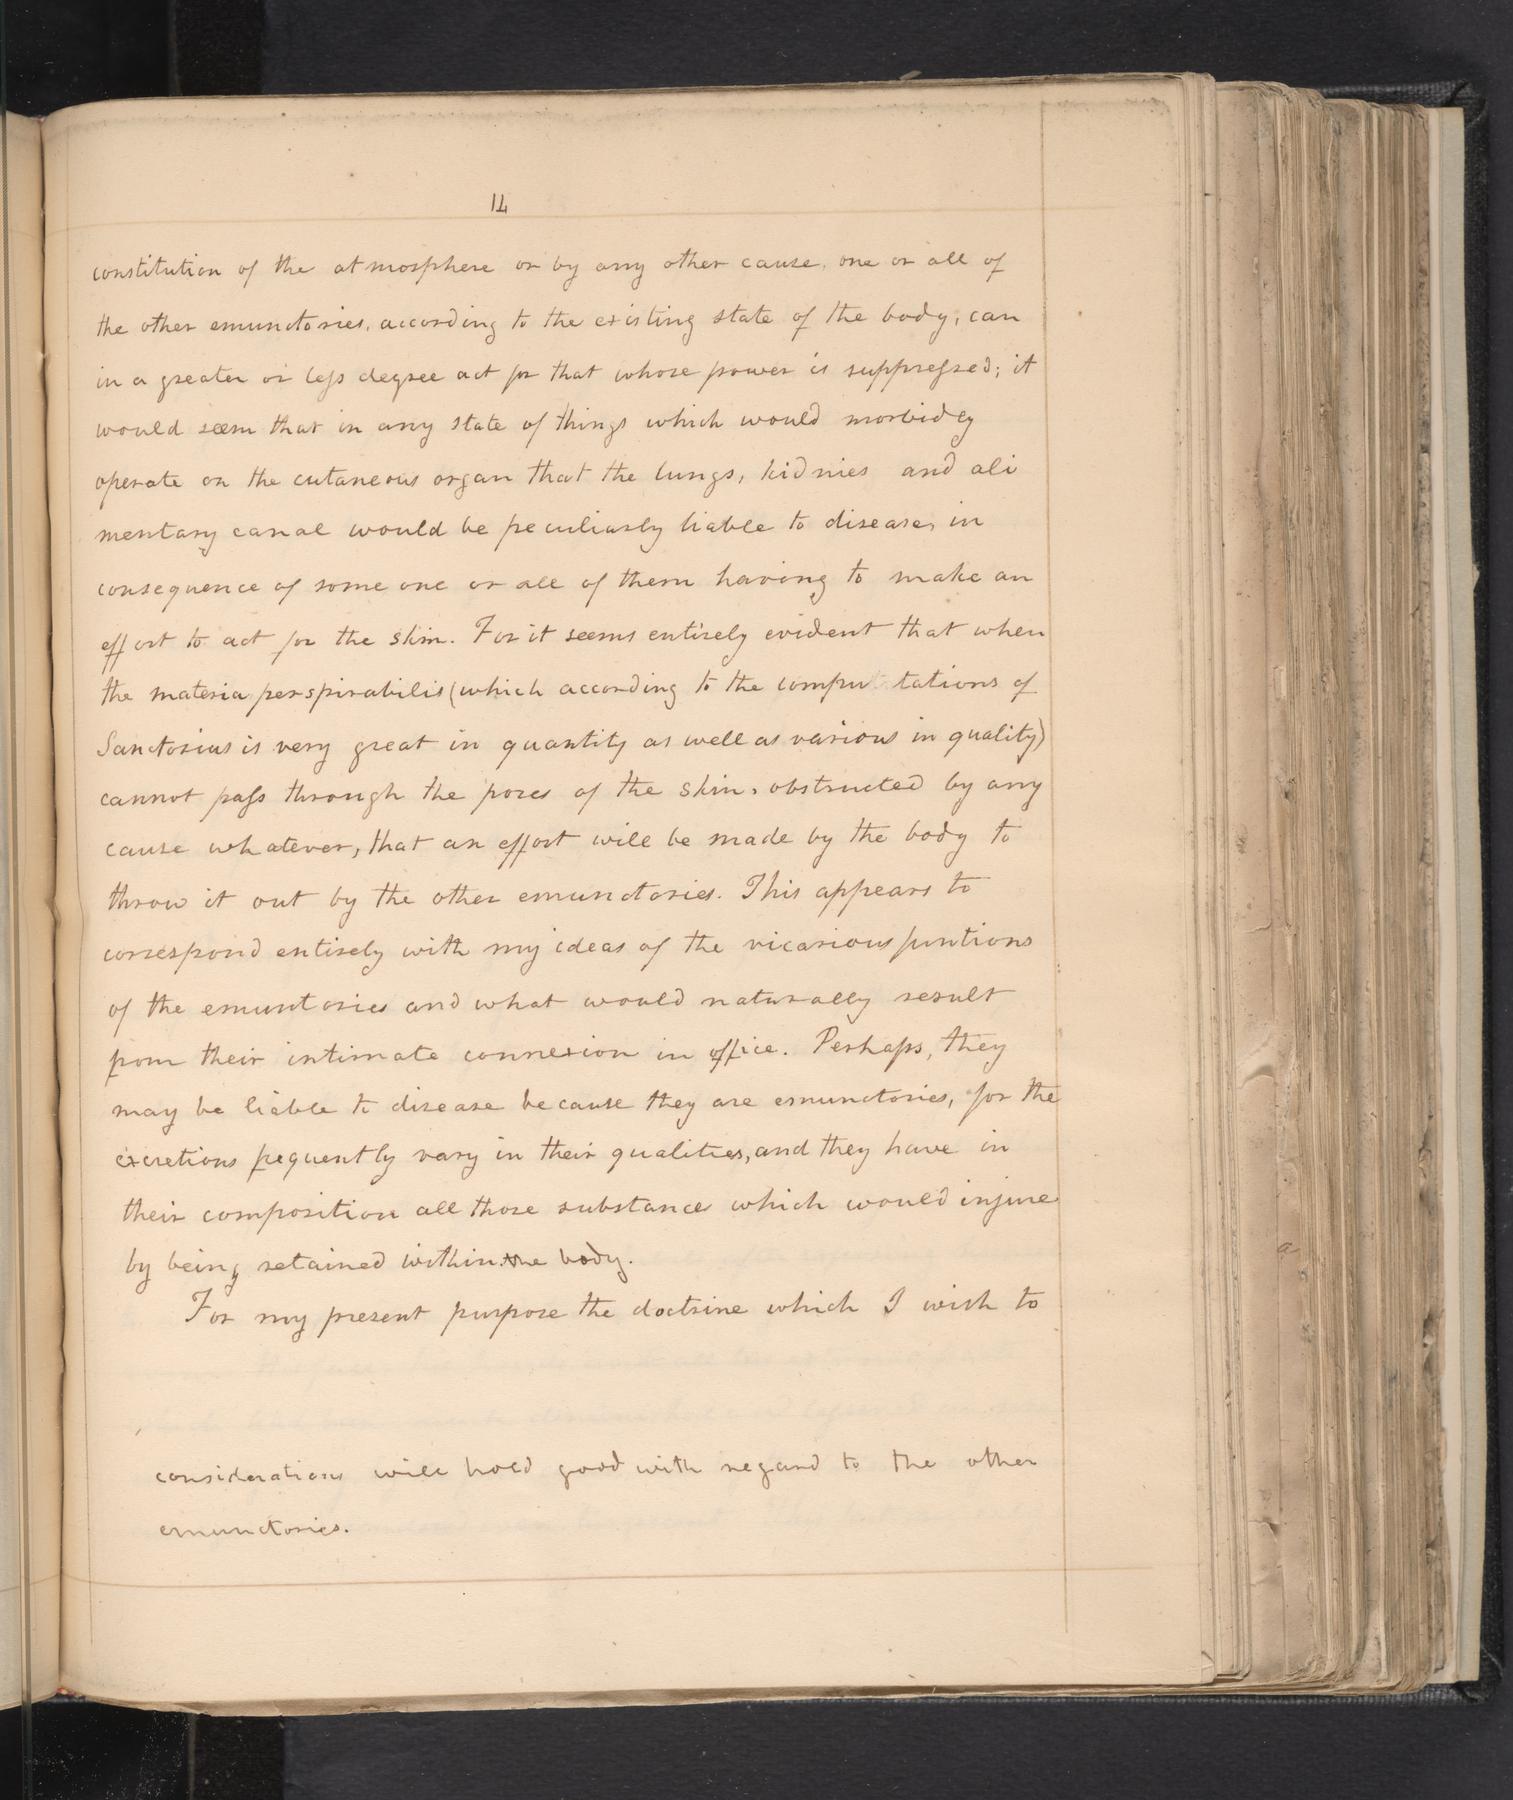 14
constitution of the atmosphere or by any other cause, one or all of
the other emunctories, according to the existing state of the body, can
in a greater or less degree act for that whose power is suppressed; it
would seem that in any state of things which would morbidly
operate on the cutaneous organ that the lungs, kidnies and ali
mentary canal would be peculiarly liable to disease, in
consequence of some one or all of them having to make an
effort to act for the skin. For it seems entirely evident that when
the materia perspirabilis (which according to the compu tations of
Sanctorius is very great in quantity as well as various in quality)
cannot pass through the pores of the skin, obstructed by any
cause whatever, that an effort will be made by the body to
throw it out by the other emunctories. This appears to
correspond entirely with my ideas of the vicarious funtions
of the emuntories and what would naturally result
from their intimate connexion in office. Perhaps, they
may be liable to disease because they are emunctories, for the
excretions frequently vary in their qualities, and they have in
their composition all those substances which would injure
by being retained within the body.
For my present purpose the doctrine which I wish to
considerations will hold good with regard to the other
emunctories.